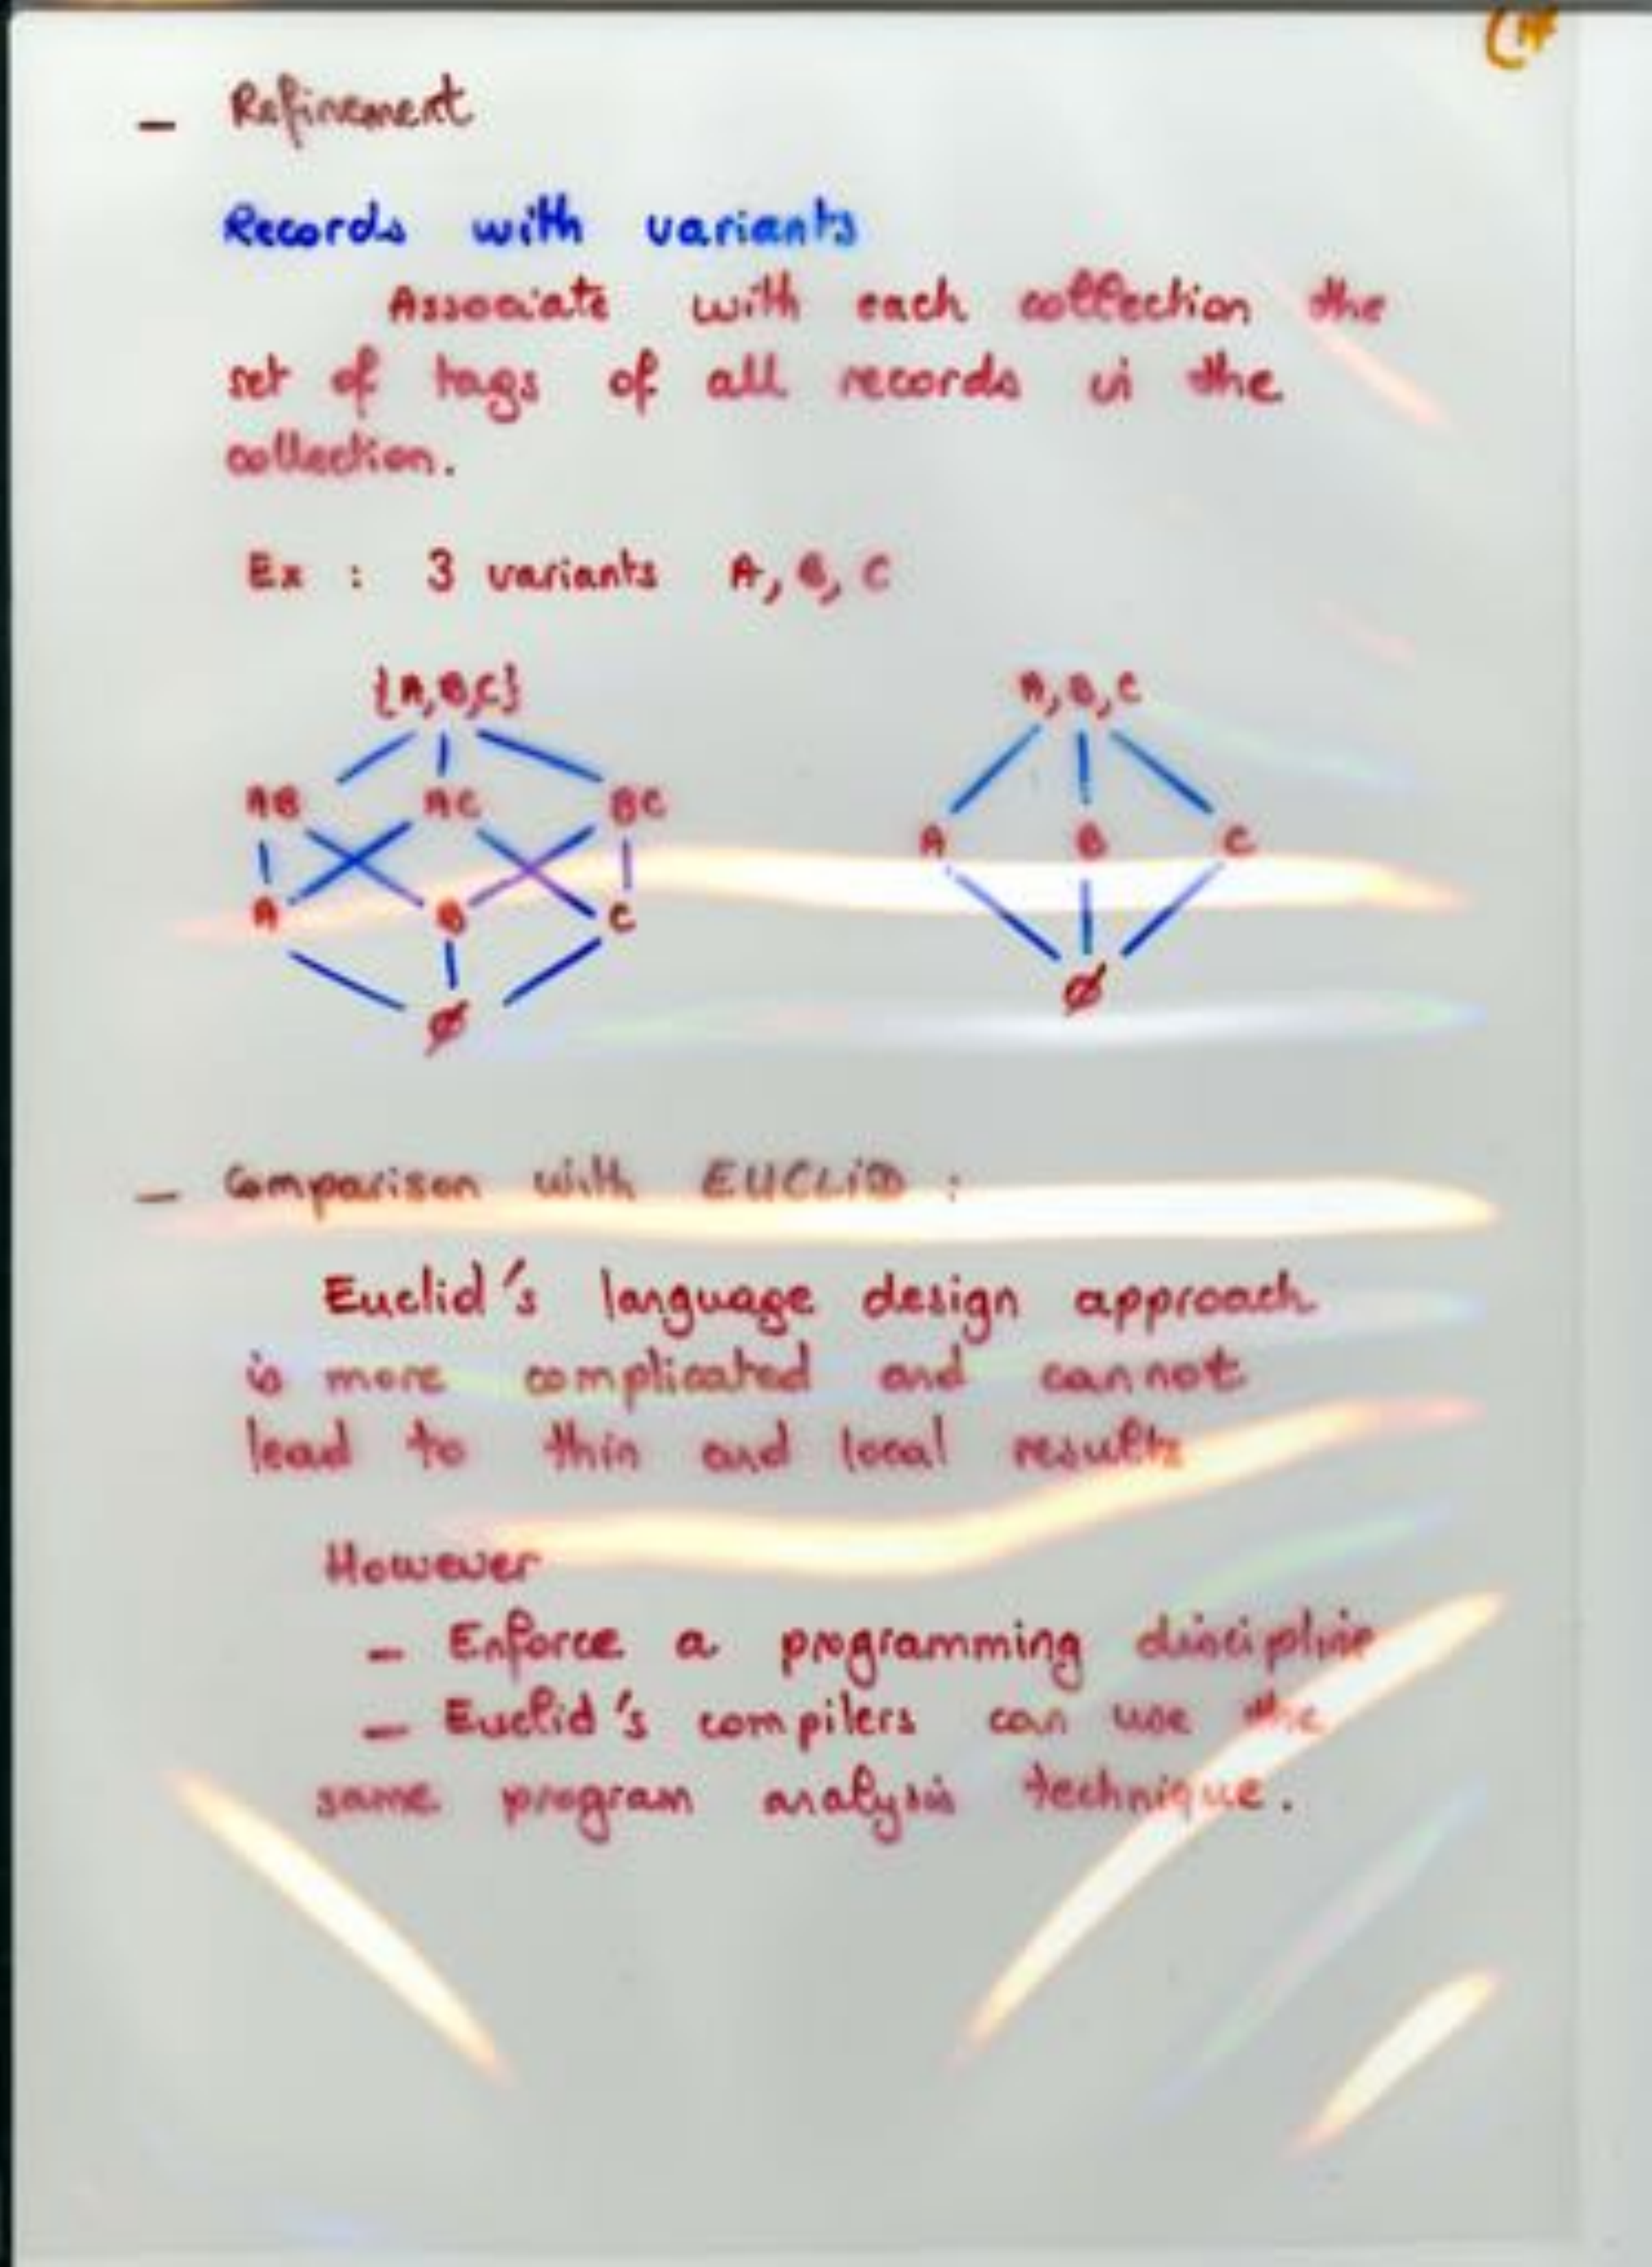 – Refinement
Records with variants
Associate with each collection the
set of tags of all records in the
collection.
Ex : 3 variants A, B, C
{A,B,C} A, B, C
AB AC BC
A B C
A B C
Ø
Ø
– Comparison with EUCLiD :
Euclid's language design approach
is more complicated and cannot
lead to thin and local results
However
– Enforce a programming discipline
– Euclid's compilers can use the
same program analysis technique.